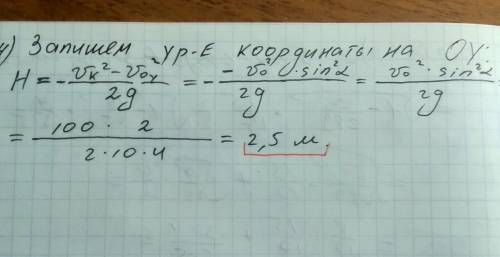 4) Запишем ур-е координаты на OY:
H = - (vк² - v₀y²)/2g = - (- v₀² · sin²α)/2g = (v₀² · sin²α)/2g
= (100 · 2)/(2·10·4) = 2,5 м.